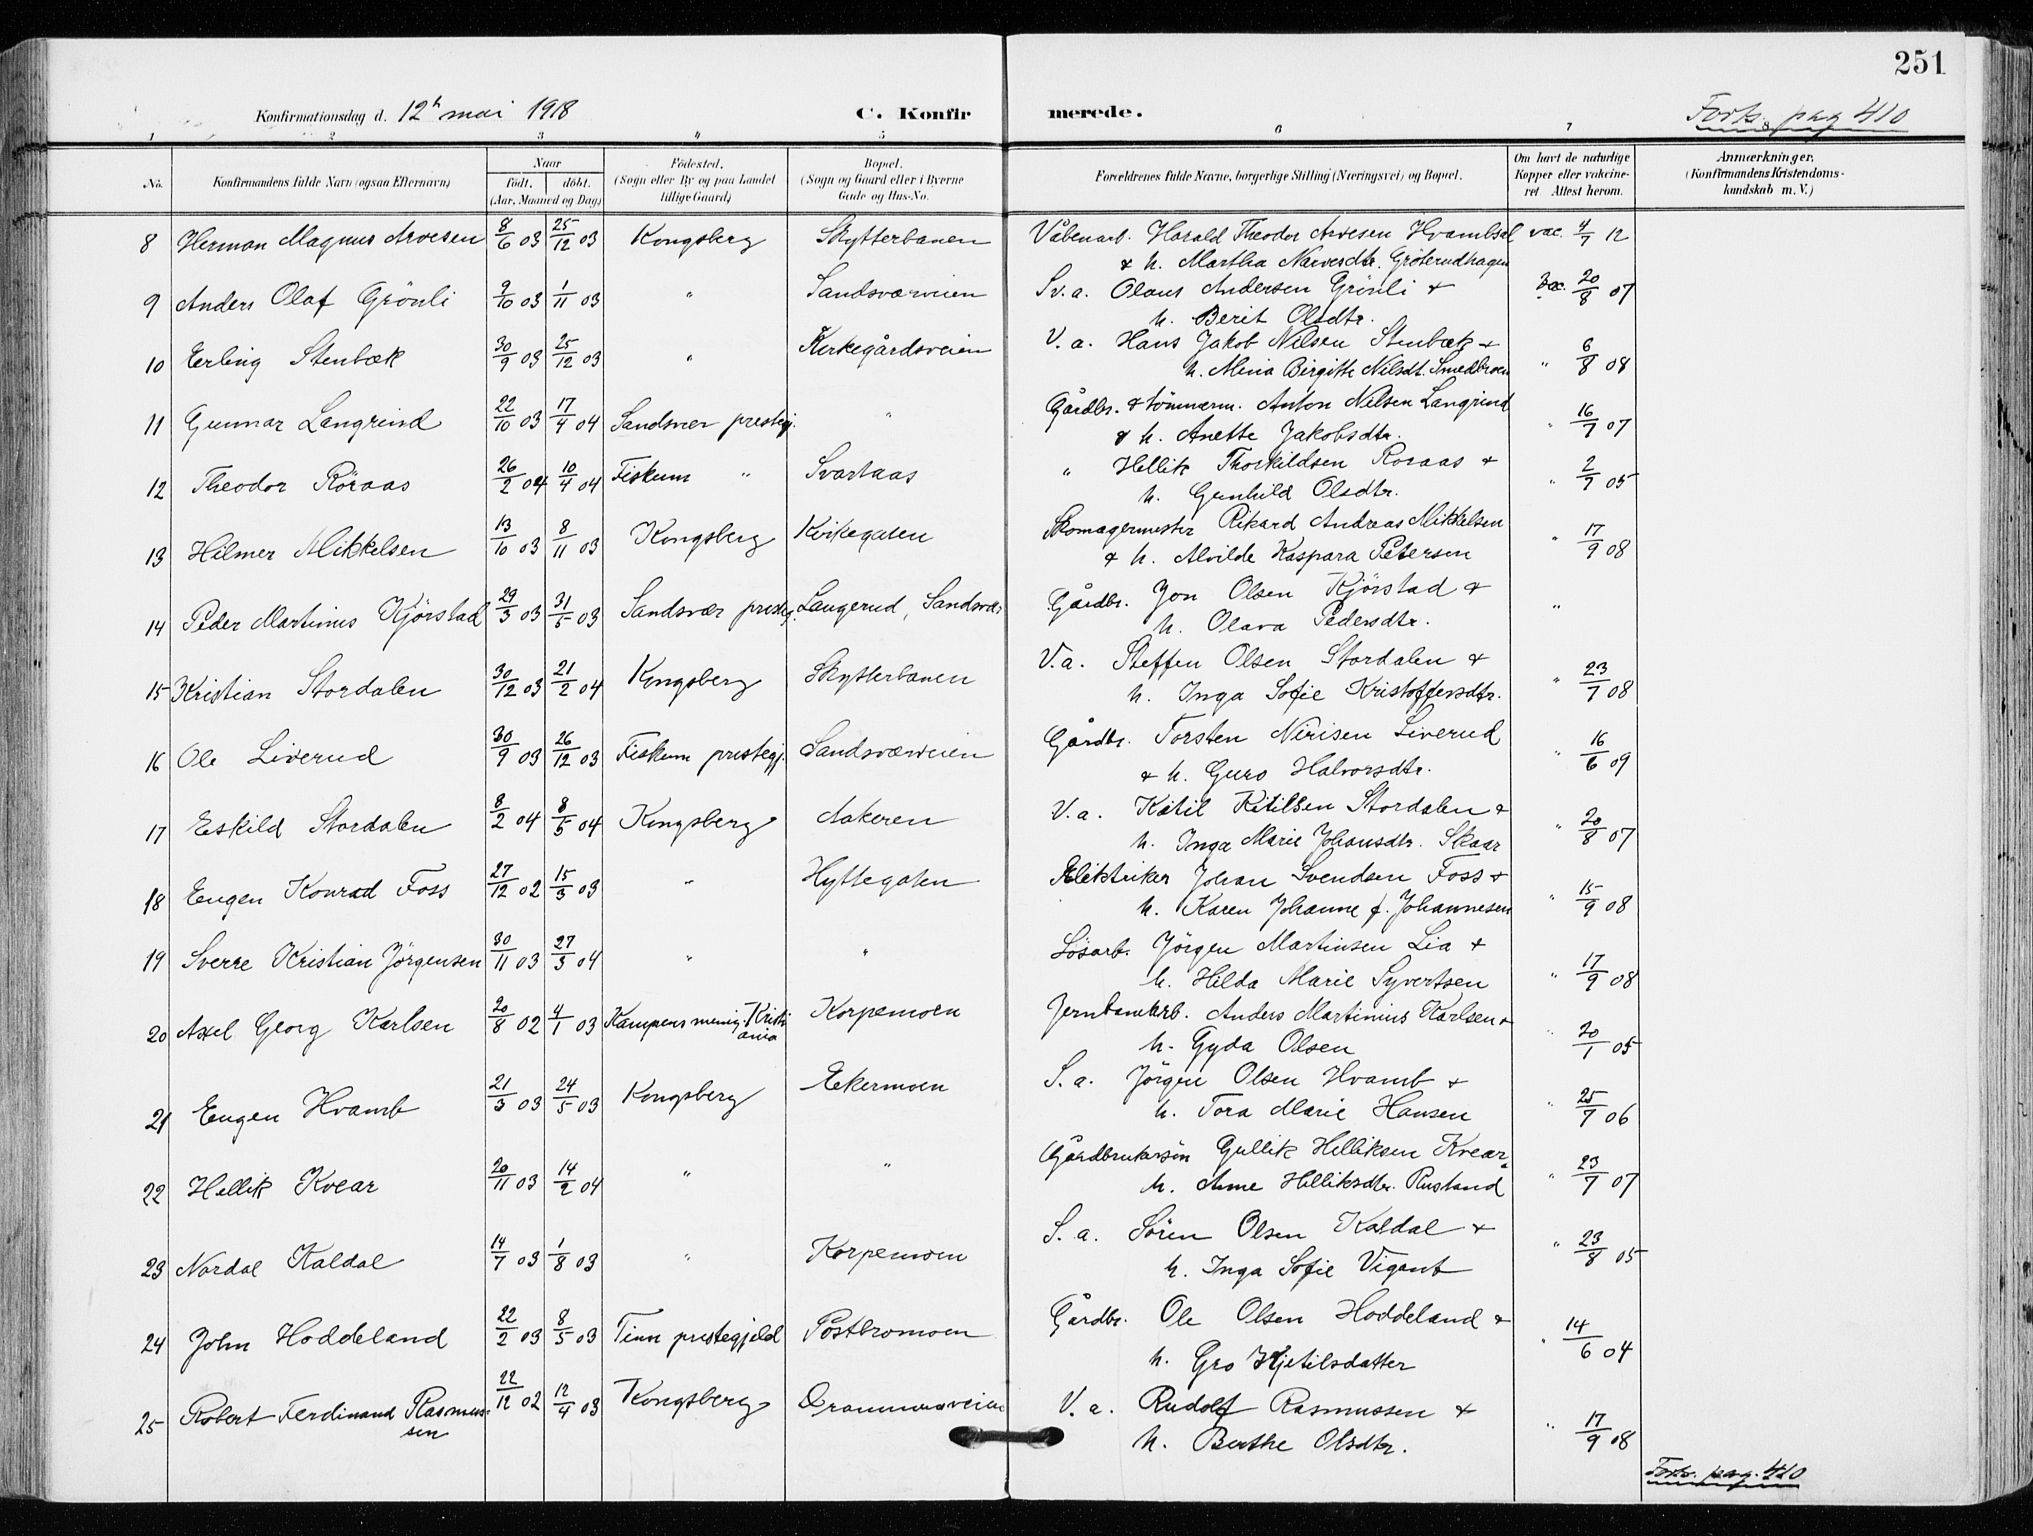 251
Konfirmationsdag d. 12te mai 1918 C. Konfirmerede. Forts. pag 410
1 2 3 4 5 6 7 8
No. Konfirmandens fulde Navn (ogsaa Efternavn) Naar født. døbt. (Aar, Maaned og Dag) Fødested. (Sogn eller By og paa Landet tillige Gaard) Bopæl. (Sogn og Gaard eller i Byerne Gade og Hus-No. Forældrenes fulde Navne, borgerlige Stilling (Næringsvei) og Bopæl. Om havt de naturlige Kopper eller vakcineret. Attest herom. Anmærkninger. (Konfirmandens Kristendomskundskab m. V.)
8 Herman Magnus Arvesen 8/6 03 25/12 03 Kongsberg Skytterbanen Våbenarb. Harald Theodor Arvesen Hvambsal vac. 4/7 12
& h. Martha Narvesdtr. Gröterudhagen
9 Anders Olaf Grönli 9/10 03 1/11 03 " Sandsværveien Sv.a. Olaus Andersen Grönli & vac. 20/8 07
h. Berit Olsdtr.
10 Erling Stenbæk 30/9 03 25/12 03 " Kirkegårdsveien V.a. Hans Jakob Nilsen Stenbæk &
h. Mina Birgitte Nilsdt. Smedbroen " 6/8 08
11 Gunnar Langrind 22/10 03 17/4 04 Sandsvær prestegj. " Gårdbr. & tömmerm. Anton Nilsen Langrind
& h. Anette Jakobsdtr. " 16/7 07
12 Theodor Röraas 26/2 04 10/4 04 Fiskum " Svartaas " Hellik Thorkildsen Roraas & " 2/7 05
h. Gunhild Olsdtr.
13 Hilmer Mikkelsen 13/10 03 8/11 03 Kongsberg Kirkegaten Skomagermester Rikard Andreas Mikkelsen
& h. Alvilde Kaspara Petersen " 17/9 08
14 Peder Martinus Kjörstad 29/3 03 31/5 03 Sandsvær presteg. Laugerud, Sandsvær Gårdbr. Jon Olsen Kjörstad & "
h. Olava Pedersdtr.
15 Kristian Stordalen 30/12 03 21/2 04 Kongsberg Skytterbanen V.a. Steffen Olsen Stordalen &
h. Inga Sofie Kristoffersdtr. " 23/7 08
16 Ole Liverud 30/9 03 26/12 03 Fiskum prestegj. Sandsværveien Gårdbr. Torsten Nirisen Liverud
& h. Guro Halvorsdtr. " 16/6 09
17 Eskild Stordalen 8/2 04 8/5 04 Kongsberg Aakeren V.a. Kätil Kitilsen Stordalen &
h. Inga Marie Johansdtr. Skaar " 20/8 07
18 Eugen Konrad Foss 27/12 02 15/3 03 " Hyttegaten Elektriker Johan Svendsen Foss &
h. Karen Johanne f. Johannesen " 15/9 08
19 Sverre Kristian Jörgensen 30/11 03 27/3 04 " " Lösarb. Jörgen Martinsen Lia &
h. Hilda Marie Syvertsen " 17/9 08
20 Axel Georg Karlsen 20/8 02 4/1 03 Kampens menig. Kristiania Korpemoen Jernbanearb. Anders Martinius Karlsen &
h. Gyda Olsen " 20/1 05
21 Eugen Hvamb 21/3 03 24/5 03 Kongsberg Ekermoen S.a. Jörgen Olsen Hvamb &
h. Tora Marie Hansen " 25/7 06
22 Hellik Kvear 20/11 03 14/2 04 " " Gårdbrukersön Gullik Helliksen Kvear &
h. Anne Helliksdtr. Rustand " 23/7 07
23 Nordal Kaldal 14/7 03 1/8 03 " Korpemoen S.a. Sören Olsen Kaldal & " 23/8 05
h. Inga Sofie Vigant
24 John Hoddeland 22/2 03 8/5 03 Tinn prestegjeld Postbromoen Gårdbr. Ole Olsen Hoddeland &
h. Gro Kjetilsdatter " 14/6 04
25 Robert Ferdinand Rasmussen 22/12 02 12/4 03 Kongsberg Drammensveien V.a. Rudolf Rasmussen &
h. Berthe Olsdtr. " 17/9 08
Forts. pag. 410